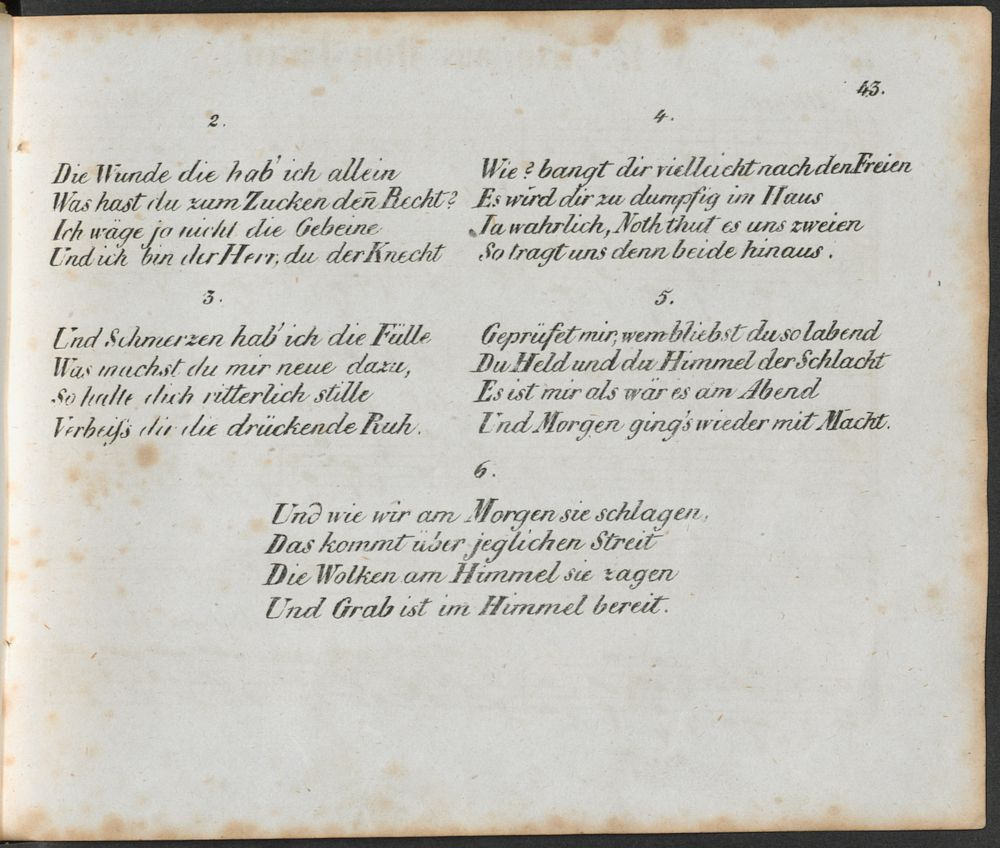 43.
2.
Die Wunde die hab' ich allein
Was hast du zum Zucken den̄ Recht?
Ich wäge ja nicht die Gebeine
Und ich bin der Herr, du der Knecht
3.
Und Schmerzen hab' ich die Fülle
Was machst du mir neue dazu,
So halte dich ritterlich stille
Verbeiß dir die drückende Ruh.
4.
Wie? bangt dir vielleicht nach den Freien
Es wird dir zu dumpfig im Haus
Ja wahrlich, Noth thut es uns zweien
So tragt uns denn beide hinaus.
5.
Geprüfet mir, wem bliebst du so labend
Du Held und du Himmel der Schlacht
Es ist mir als wär es am Abend
Und Morgen ging's wieder mit Macht.
6.
Und wie wir am Morgen sie schlagen,
Das kommt über jeglichen Streit
Die Wolken am Himmel sie zagen
Und Grab ist im Himmel bereit.